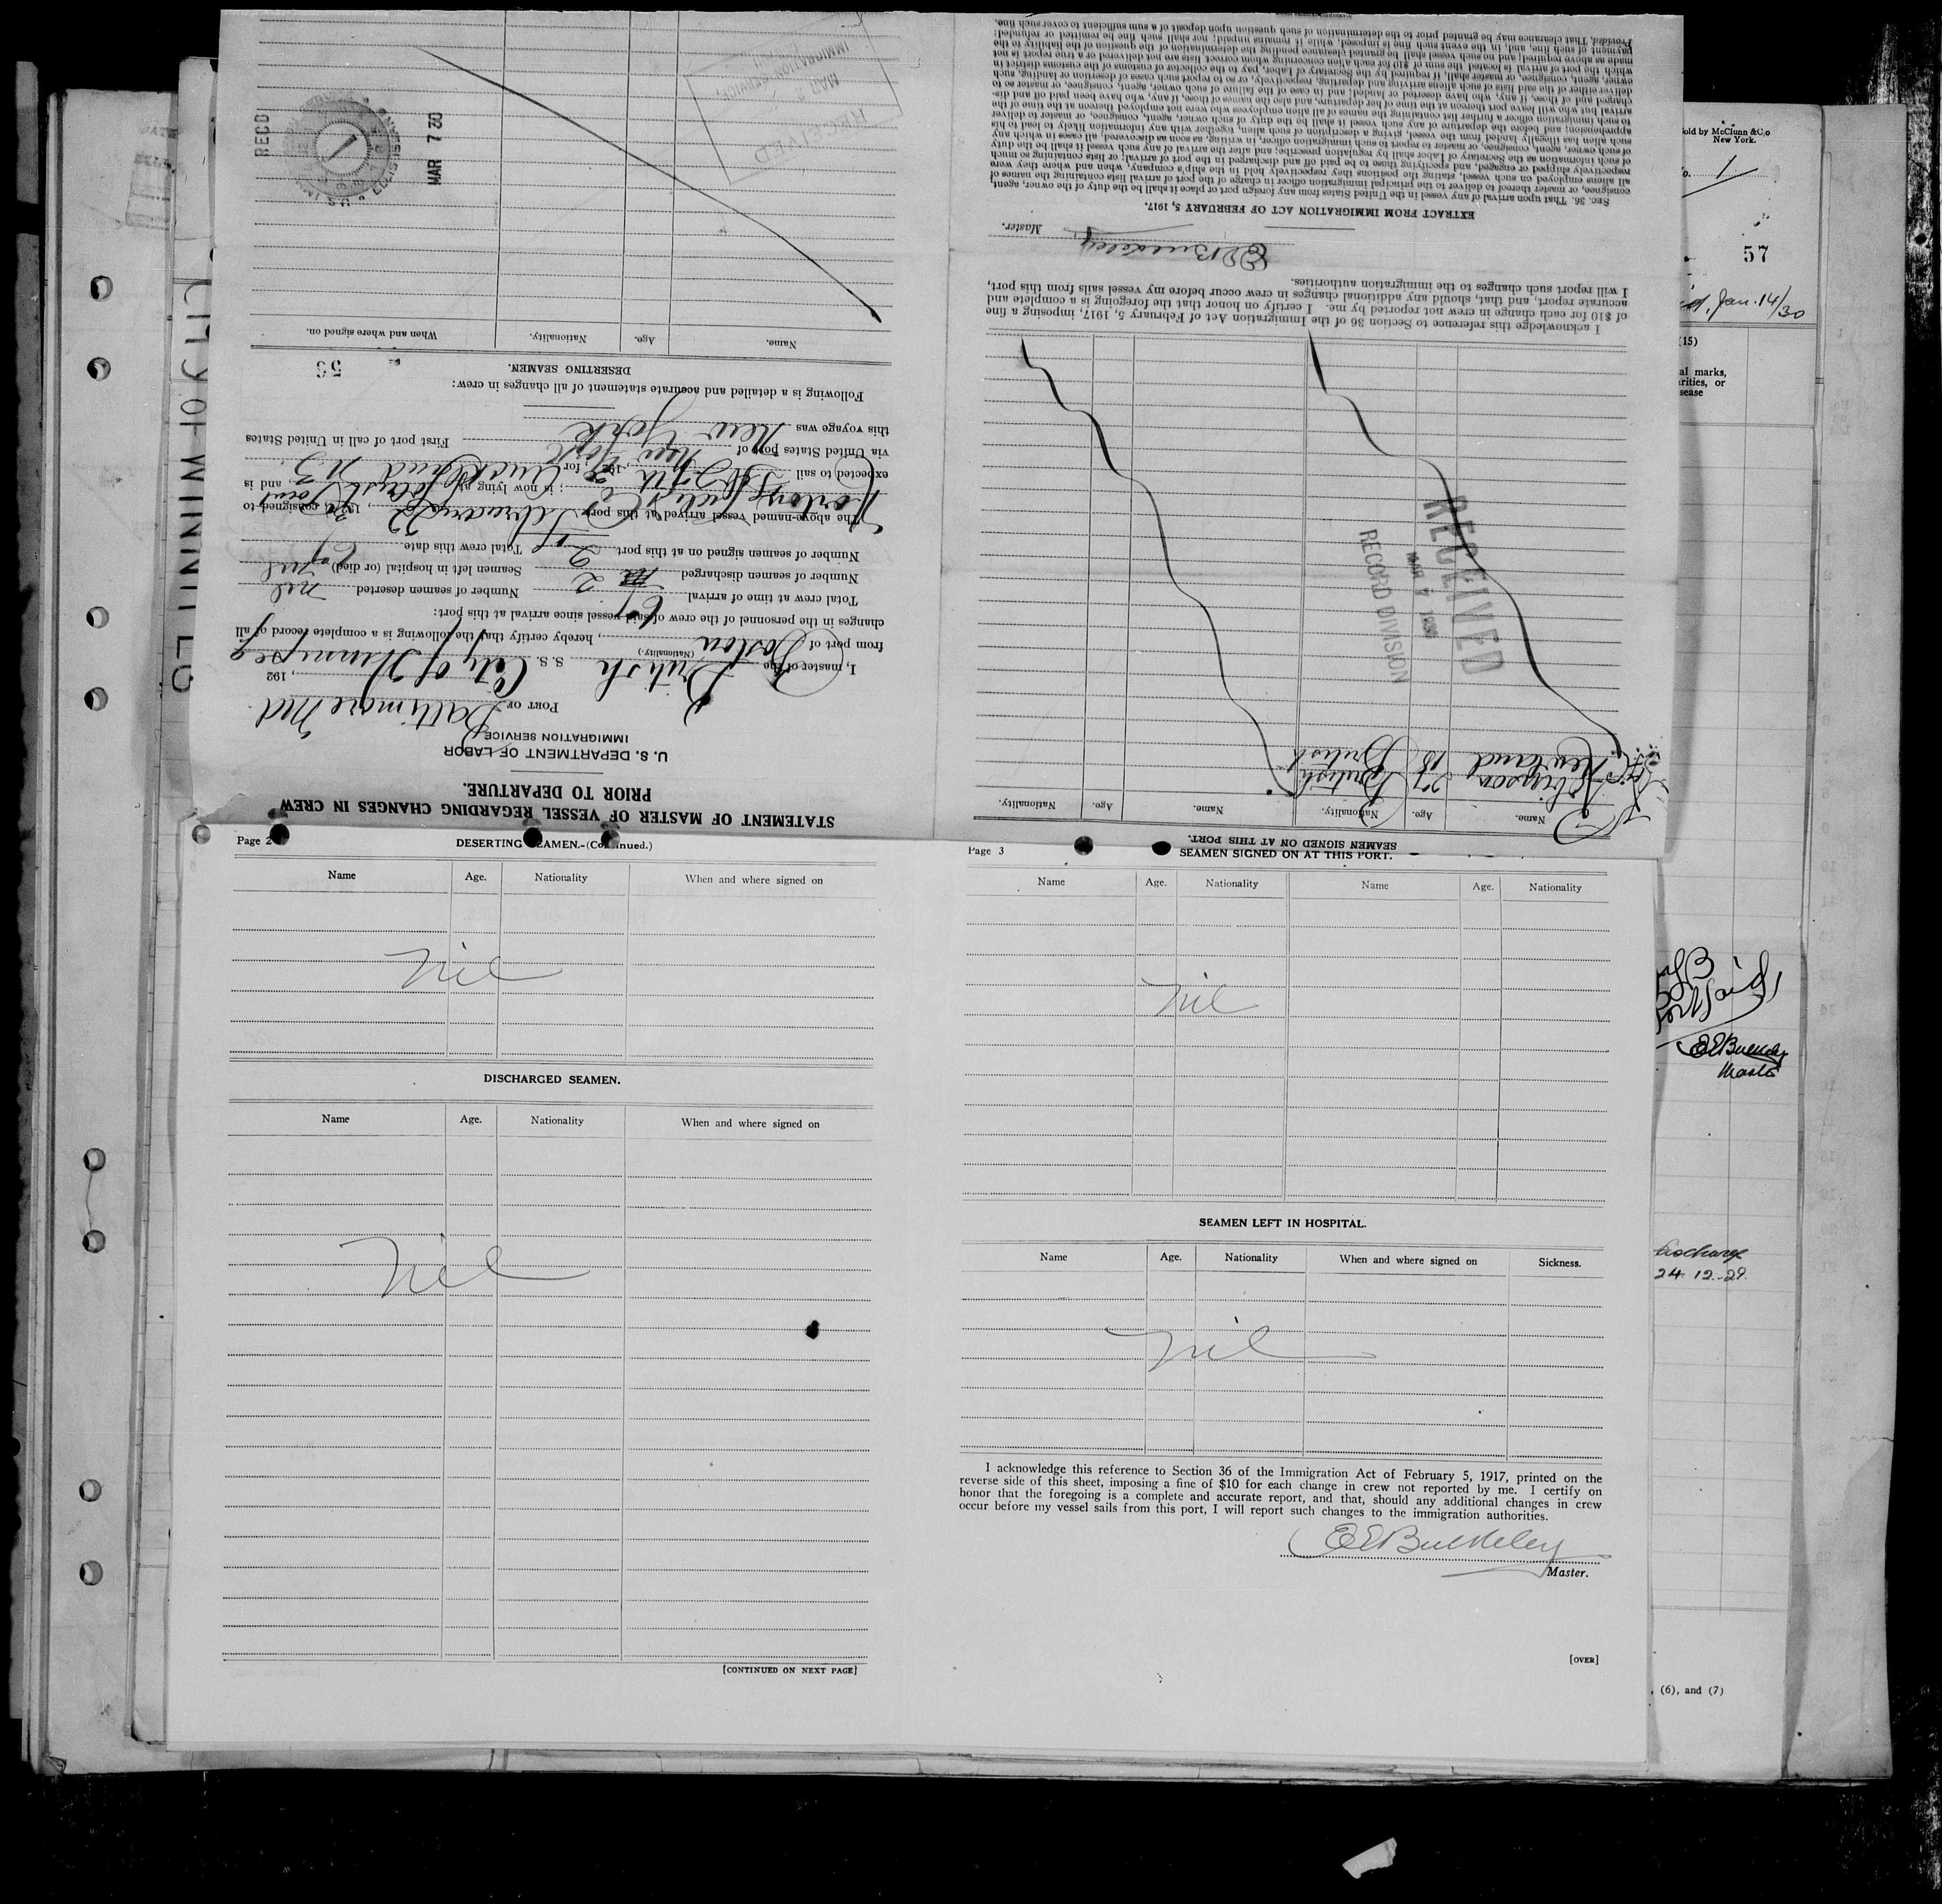 STATEMENT OF MASTER OF VESSEL REGARDING CHANGES IN CREW
PRIOR TO DEPARTURE.
U. S. DEPARTMENT OF LABOR
IMMIGRATION SERVICE
PORT OF Baltimore Md
, 192
I, master of the British S. S. City of Winnipeg
(Nationality.)
from port of Boston, hereby certify that the following is a complete record of all
changes in the personnel of the crew of said vessel since arrival at this port:
Total crew at time of arrival 67 Number of seamen deserted nil
Number of seamen discharged 2 Seamen left in hospital (or died) nil
Number of seamen signed on at this port 2 Total crew this date 67
The above-named vessel arrived at this port February 22, 1930, consigned to
Norton Lilly & Co; is now lying at Locust Point and is
expected to sail, 192, for Auckland N.Z.
via United States port of New York First port of call in United States
this voyage was New York
Following is a detailed and accurate statement of all changes in crew:
DESERTING SEAMEN.
Name. Age. Nationality. When and where signed on.
RECD
MAR 7 30
RECEIVED
MAR
IMMIGRATION SERVICE
SEAMEN SIGNED ON AT THIS PORT.
Name. Age. Nationality. Name. Age. Nationality.
Robinson 27 British
Newland 18 British
RECEIVED
MAR 7 1930
RECORD DIVISION
I acknowledge this reference to Section 36 of the Immigration Act of February 5, 1917, imposing a fine
of $10 for each change in crew not reported by me. I certify on honor that the foregoing is a complete and
accurate report, and that, should any additional changes in crew occur before my vessel sails from this port,
I will report such changes to the immigration authorities.
E E Bulkeley
Master.
EXTRACT FROM IMMIGRATION ACT OF FEBRUARY 5, 1917.
SEC. 36. That upon arrival of any vessel in the United States from any foreign port or place it shall be the duty of the owner, agent,
consignee, or master thereof to deliver to the principal immigration officer in charge of the port of arrival lists containing the names of
all aliens employed on such vessel, stating the positions they respectively hold in the ship's company, when and where they were
respectively shipped or engaged, and specifying those to be paid off and discharged in the port of arrival; or lists containing so much
of such information as the Secretary of Labor shall by regulation prescribe; and after the arrival of any such vessel it shall be the duty
of such owner, agent, consignee, or master to report to such immigration officer, in writing, as soon as discovered, all cases in which any
such alien has illegally landed from the vessel, giving a description of such alien, together with any information likely to lead to his
apprehension; and before the departure of any such vessel it shall be the duty of such owner, agent, consignee, or master to deliver
to such immigration officer a further list containing the names of all alien employees who were not employed thereon at the time of the
arrival but who will leave port thereon at the time of her departure, and also the names of those, if any, who have been paid off and dis-
charged and of those, if any, who have deserted or landed; and in case of the failure of such owner, agent, consignee, or master so to
deliver either of the said lists of such aliens arriving and departing, respectively, or so to report such cases of desertion or landing, such
owner, agent, consignee, or master, shall, if required by the Secretary of Labor, pay to the collector of customs of the customs district in
which the port of arrival is located the sum of $10 for each alien concerning whom correct lists are not delivered or a true report is not
made as above required; and no such vessel shall be granted clearance pending the determination of the question of the liability to the
payment of such fine, and, in the event such fine is imposed, while it remains unpaid; nor shall such fine be remitted or refunded:
Provided, That clearance may be granted prior to the determination of such question upon deposit of a sum sufficient to cover such fine.
Page 2
DESERTING SEAMEN.-(Continued.)
Name Age. Nationality When and where signed on
nil
DISCHARGED SEAMEN.
Name Age. Nationality When and where signed on
nil
[CONTINUED ON NEXT PAGE]
Page 3
SEAMEN SIGNED ON AT THIS PORT.
Name Age. Nationality Name Age. Nationality
nil
SEAMEN LEFT IN HOSPITAL.
Name Age. Nationality When and where signed on Sickness.
nil
I acknowledge this reference to Section 36 of the Immigration Act of February 5, 1917, printed on the
reverse side of this sheet, imposing a fine of $10 for each change in crew not reported by me. I certify on
honor that the foregoing is a complete and accurate report, and that, should any additional changes in crew
occur before my vessel sails from this port, I will report such changes to the immigration authorities.
E E Bulkeley
Master.
[OVER]
Sold by McClunn & Co
New York.
No. 1
57
Jan. 14/30
(15)
sease
E E Bulkeley
Master
24-12-29
, (6), and (7)